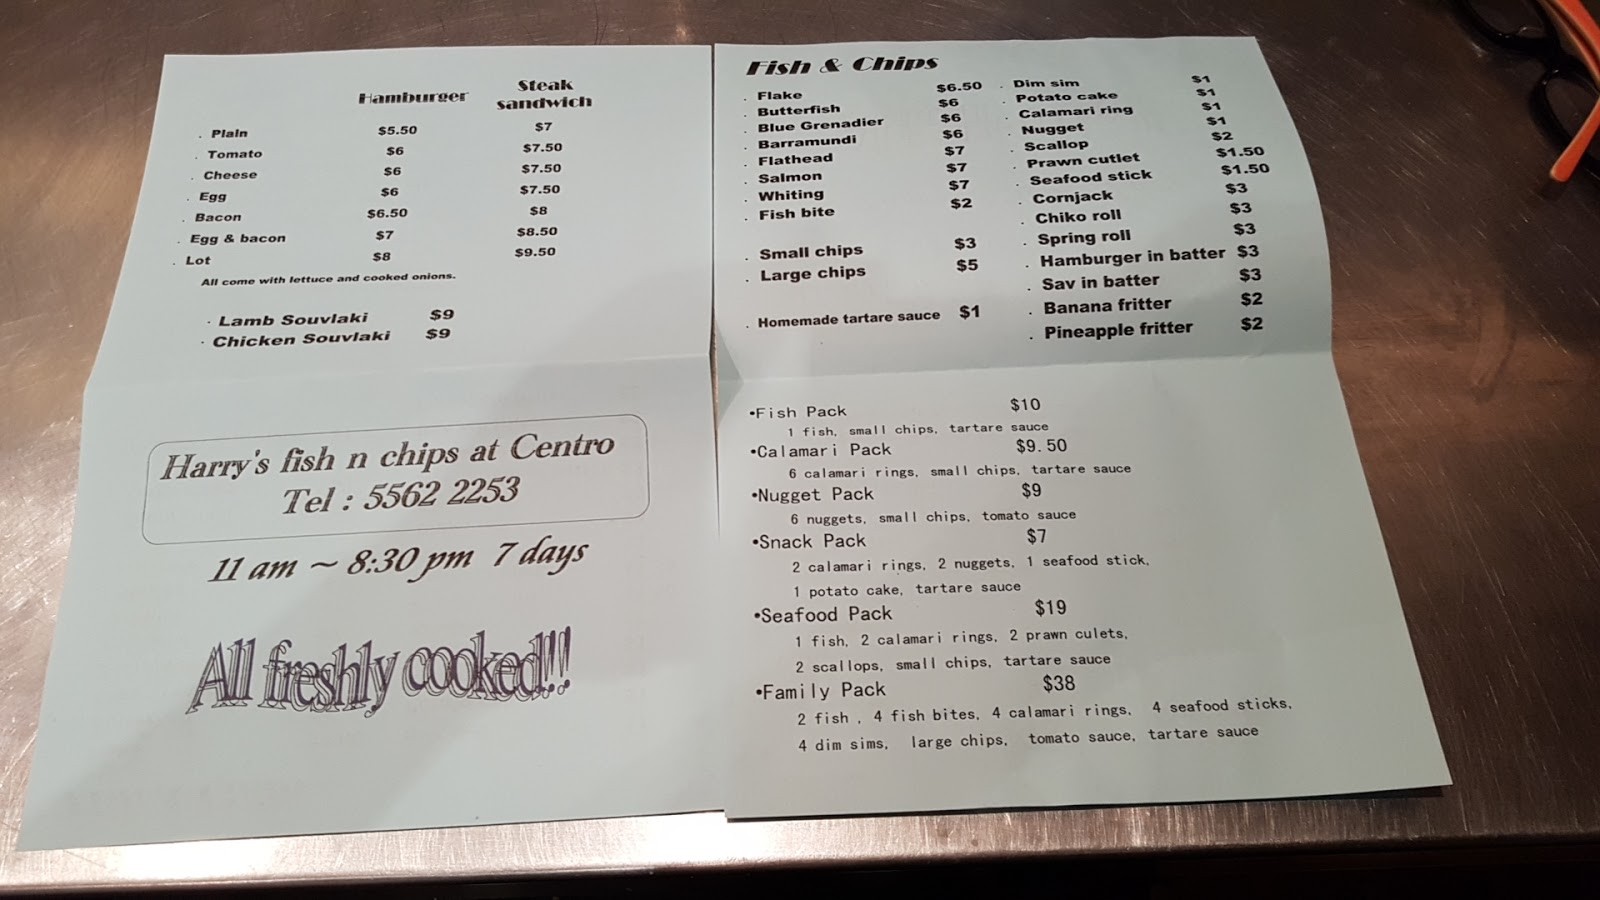 Hamburger Steak sandwich
. Plain $5.50 $7
. Tomato $6 $7.50
. Cheese $6 $7.50
. Egg $6 $7.50
. Bacon $6.50 $8
. Egg & bacon $7 $8.50
. Lot $8 $9.50
All come with lettuce and cooked onions.
. Lamb Souvlaki $9
. Chicken Souvlaki $9
Harry's fish n chips at Centro
Tel : 5562 2253
11 am ~ 8:30 pm 7 days
All freshly cooked!!!
Fish & Chips
. Flake $6.50
. Butterfish $6
. Blue Grenadier $6
. Barramundi $6
. Flathead $7
. Salmon $7
. Whiting $7
. Fish bite $2
. Small chips $3
. Large chips $5
. Homemade tartare sauce $1
. Dim sim $1
. Potato cake $1
. Calamari ring $1
. Nugget $1
. Scallop $2
. Prawn cutlet $1.50
. Seafood stick $1.50
. Cornjack $3
. Chiko roll $3
. Spring roll $3
. Hamburger in batter $3
. Sav in batter $3
. Banana fritter $2
. Pineapple fritter $2
•Fish Pack $10
1 fish, small chips, tartare sauce
•Calamari Pack $9.50
6 calamari rings, small chips, tartare sauce
•Nugget Pack $9
6 nuggets, small chips, tomato sauce
•Snack Pack $7
2 calamari rings, 2 nuggets, 1 seafood stick,
1 potato cake, tartare sauce
•Seafood Pack $19
1 fish, 2 calamari rings, 2 prawn culets,
2 scallops, small chips, tartare sauce
•Family Pack $38
2 fish , 4 fish bites, 4 calamari rings, 4 seafood sticks,
4 dim sims, large chips, tomato sauce, tartare sauce